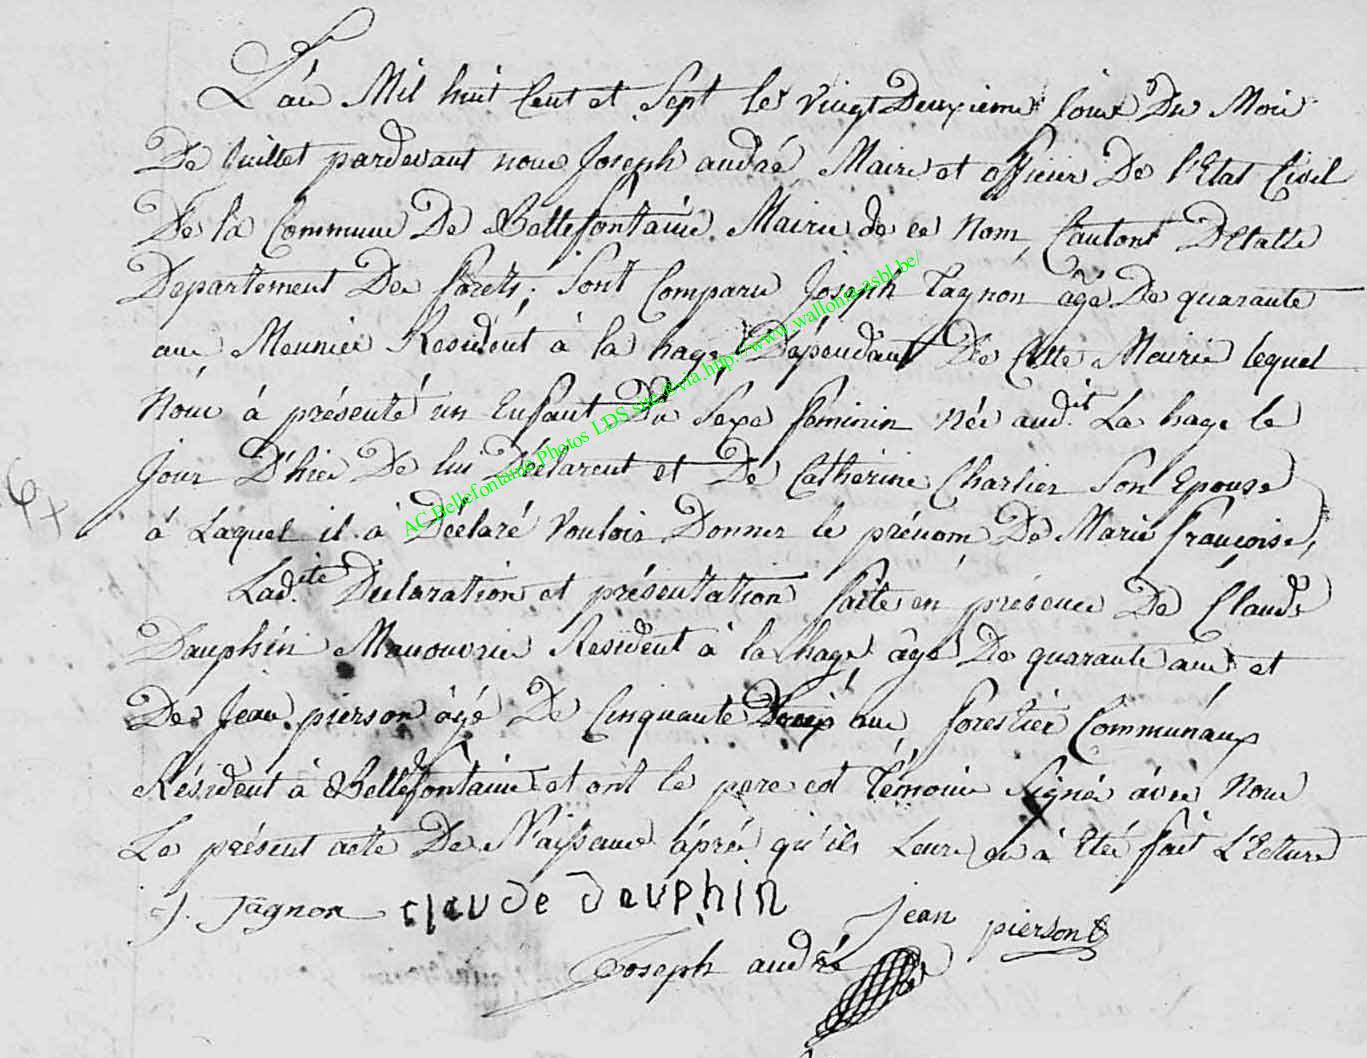 L'an Mil huit Cent et Sept le vingt Deuxieme Jour Du Moi
De Juillet pardevant nous Joseph andré, Maire et officier De l'Etat Civil
De la Commune De Bellefontaine Mairie de ce Nom, Canton D'Etalle
Departement Des forêts; Sont Comparu Joseph Tagnon âgé De quarante
ans Meunier Résident à la hage Dépendant De Cette Mairie lequel
Nous à présenté un Enfant Du Sexe féminin née audit La hage le
Jour D'hier De lui Déclarent et De Catherine Charlier Son Epouse
à Laquel il à Déclaré vouloir Donner le prénom De Marie françoise,
Ladite Declaration et présentation faite en présence De Claude
Dauphin Manouvrie Résident à la hage âgé De quarante ans et
De Jean pierson âgé De Cinquante ans forestier Communaux
Résident à Bellefontaine et ont le pere et Témoins Signé avec Nous
Le présent acte De Naissance après qu'ils Leure en à Eté fait L'Ecture
J. Tagnon claude dauphin
jean pierson
Joseph andré
AC Bellefontaine Photos LDS site & via http://www.wallonia-asbl.be/